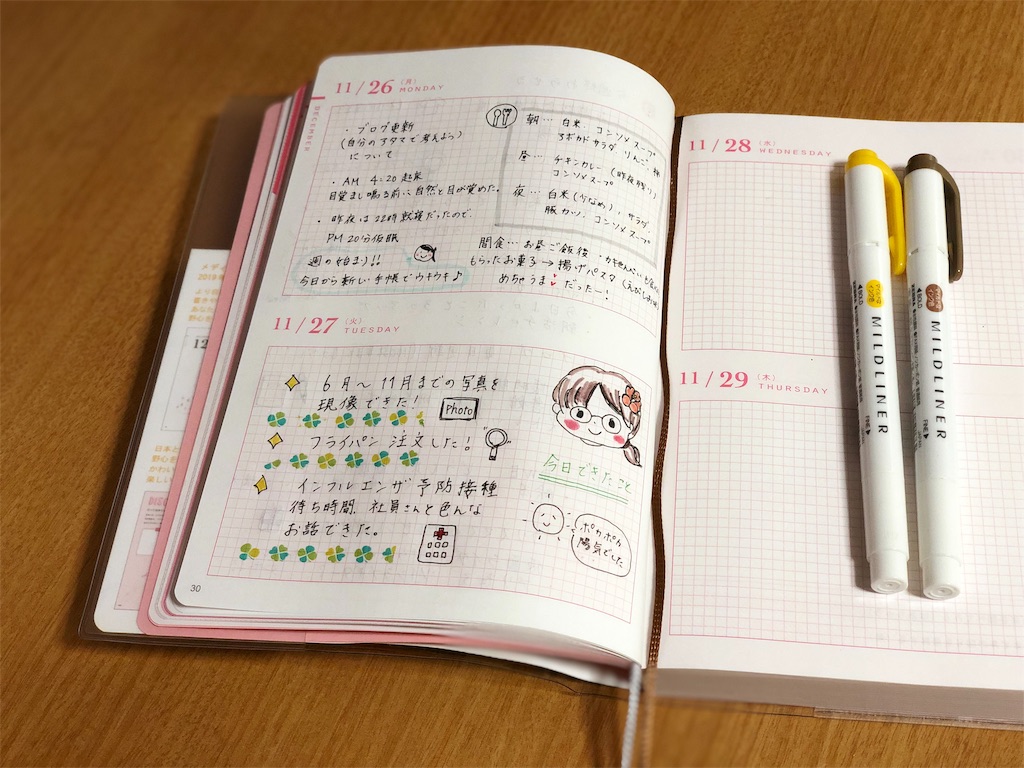 11/26 (月) MONDAY
DECEMBER
・ブログ更新
(自分のアタマで考えよう)
について
・AM 4:20 起床
目覚まし鳴る前に自然と目が覚めた。
・昨夜は22時就寝だったので、
PM 20分仮眠
週の始まり!!
今日から新しい手帳でウキウキ♪
朝… 白米、コンソメスープ
アボカドサラダ りんご
昼… チキンカレー (昨夜残り)
コンソメスープ
夜… 白米(少なめ)、サラダ
豚カツ、コンソメスープ
間食… お昼ご飯後
もらったお菓子→揚げパスタ
めちゃうま♥だったー!
11/27 (火) TUESDAY
6月〜11月までの写真を
現像できた!
Photo
フライパン注文した!
インフルエンザ予防接種
待ち時間、社員さんと色んな
お話できた。
今日できたこと
ポカポカ
陽気でした
30
11/28 (水) WEDNESDAY
11/29 (木) THURSDAY
MILDLINER
MILDLINER